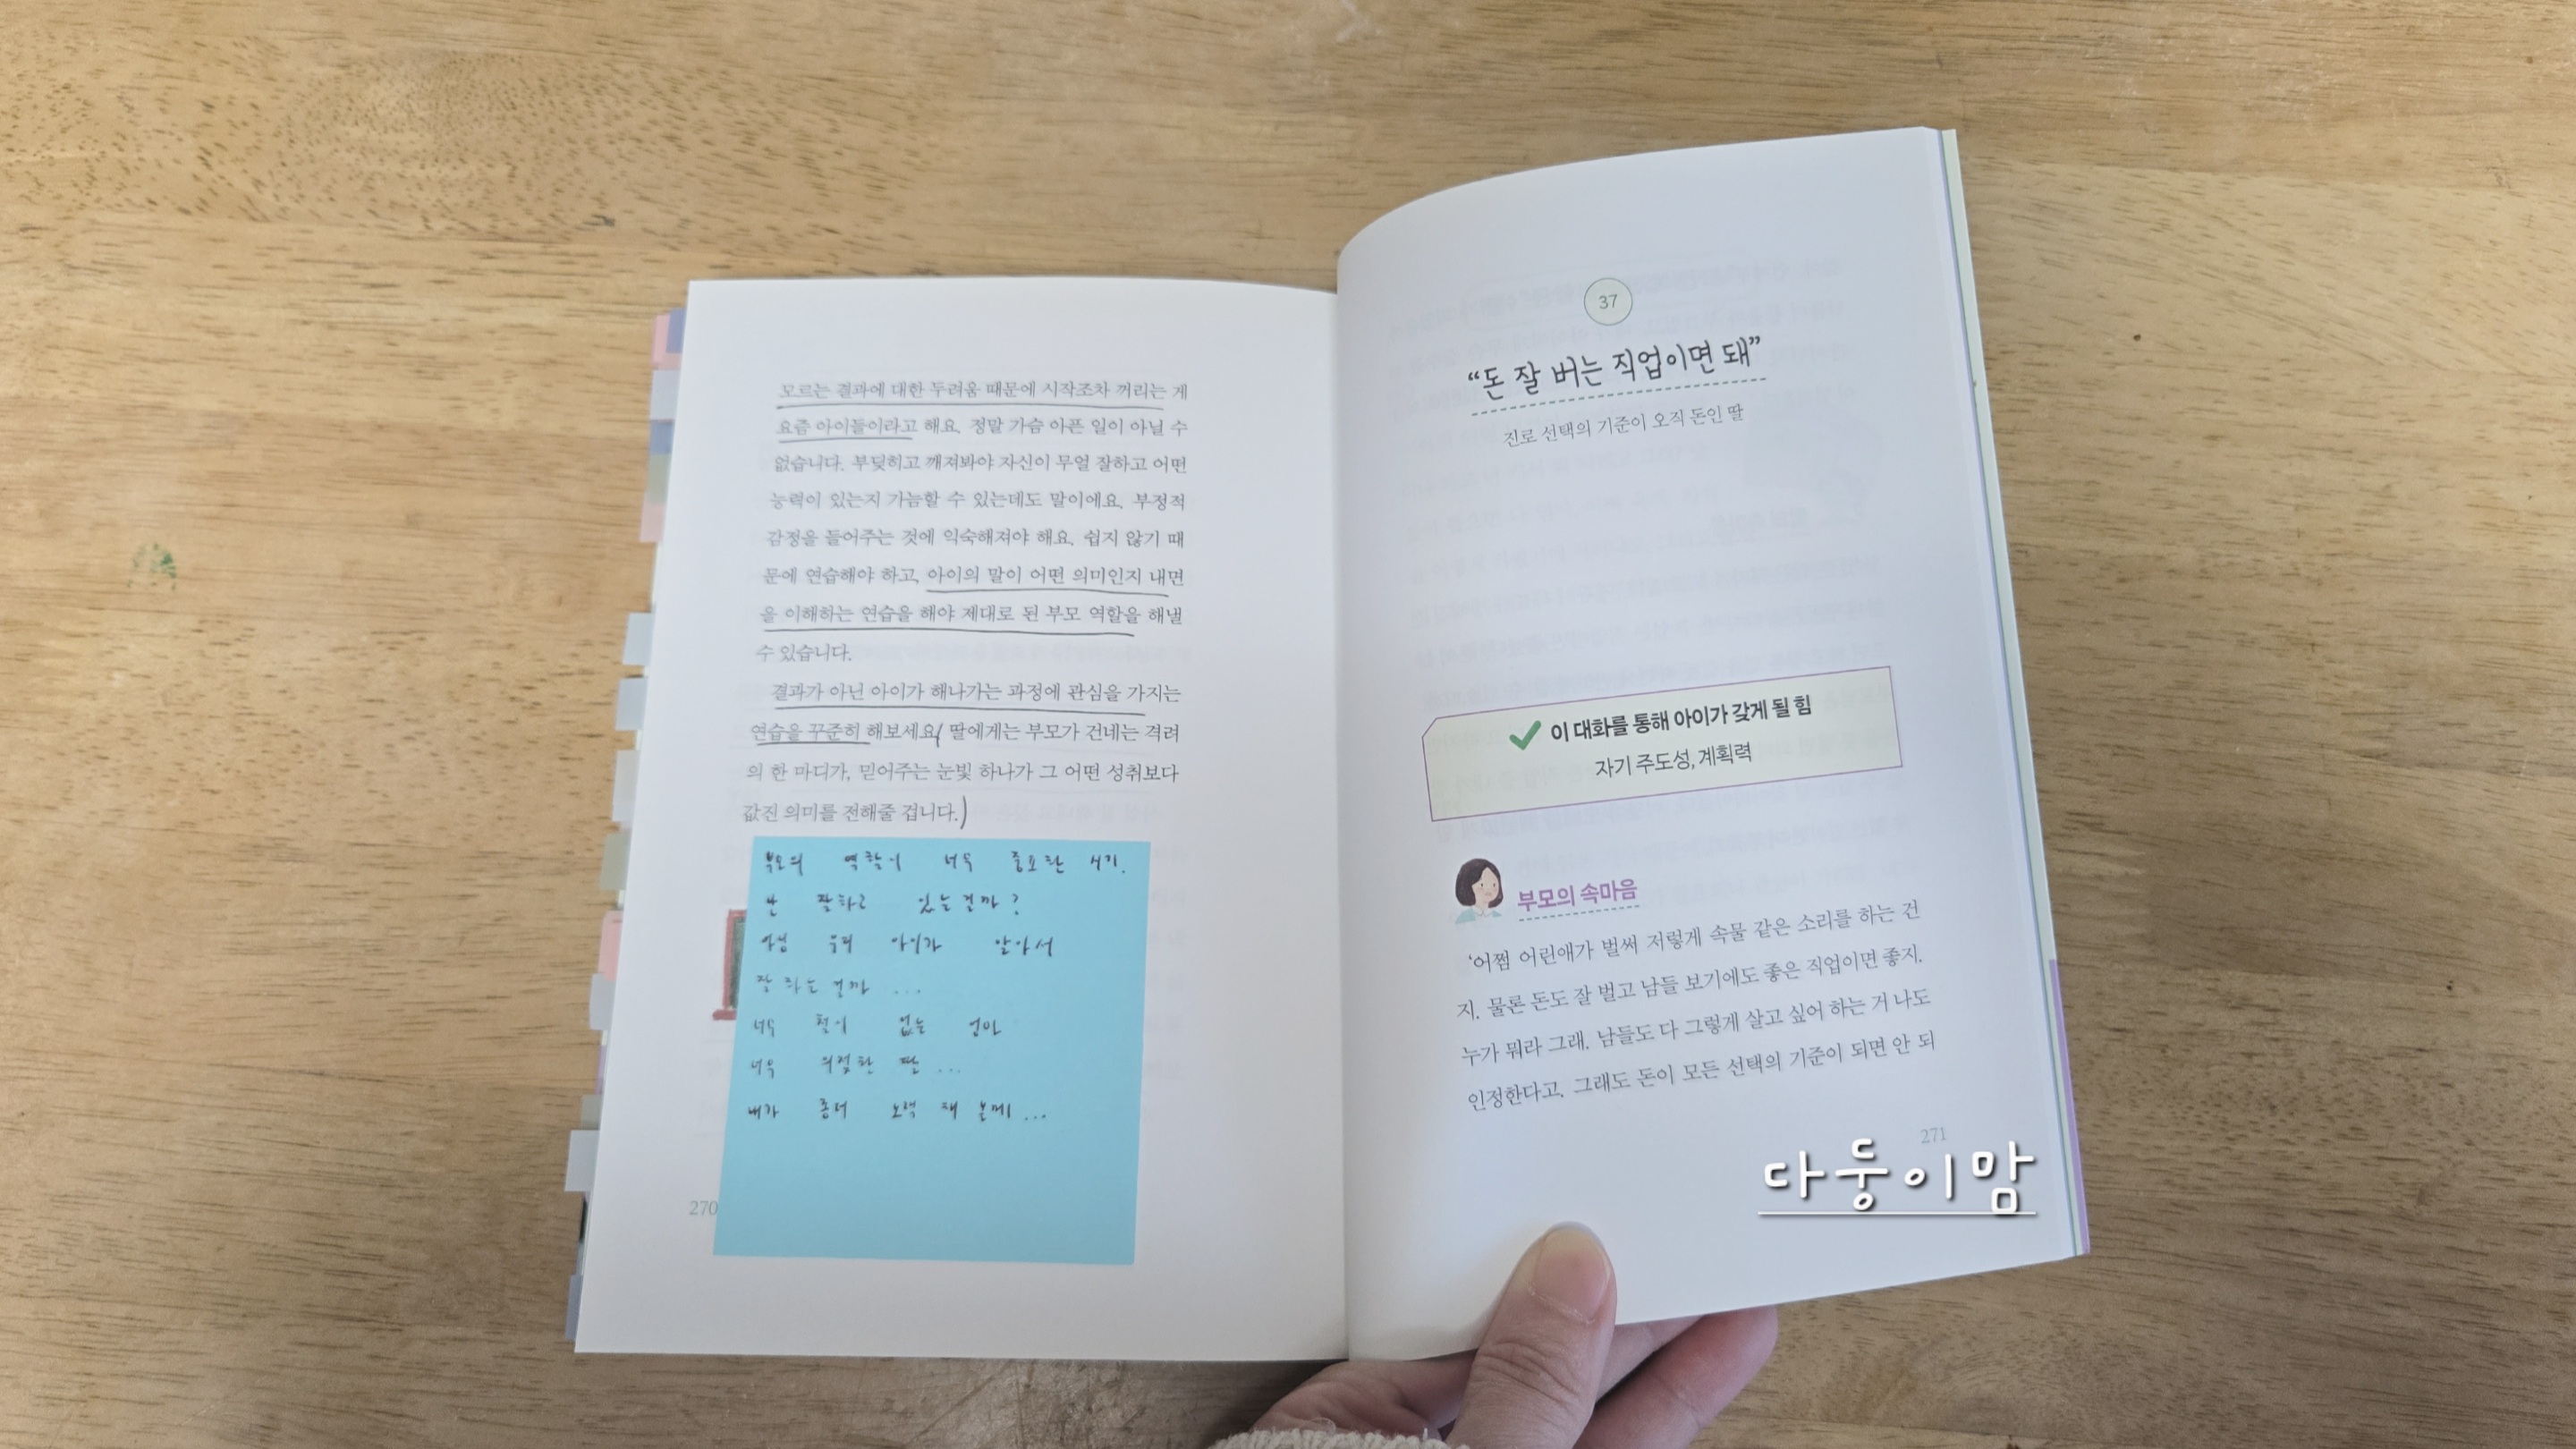 모르는 결과에 대한 두려움 때문에 시작조차 꺼리는 게
요즘 아이들이라고 해요. 정말 가슴 아픈 일이 아닐 수
없습니다. 부딪히고 깨져봐야 자신이 무얼 잘하고 어떤
능력이 있는지 가늠할 수 있는데도 말이에요. 부정적
감정을 들어주는 것에 익숙해져야 해요. 쉽지 않기 때
문에 연습해야 하고, 아이의 말이 어떤 의미인지 내면
을 이해하는 연습을 해야 제대로 된 부모 역할을 해낼
수 있습니다.
결과가 아닌 아이가 해나가는 과정에 관심을 가지는
연습을 꾸준히 해보세요. 딸에게는 부모가 건네는 격려
의 한 마디가, 믿어주는 눈빛 하나가 그 어떤 성취보다
값진 의미를 전해줄 겁니다.
부모의 역할이 너무 중요한 시기.
난 잘하고 있는걸까?
아님 우리 아이가 알아서
잘 하는 걸까 ...
너무 철이 없는 엄마
너무 의젓한 딸 ...
내가 좀더 노력 해 볼께 ...
270
37
“돈 잘 버는 직업이면 돼”
진로 선택의 기준이 오직 돈인 딸
이 대화를 통해 아이가 갖게 될 힘
자기 주도성, 계획력
부모의 속마음
‘어쩜 어린애가 벌써 저렇게 속물 같은 소리를 하는 건
지. 물론 돈도 잘 벌고 남들 보기에도 좋은 직업이면 좋지.
누가 뭐라 그래. 남들도 다 그렇게 살고 싶어 하는 거 나도
인정한다고. 그래도 돈이 모든 선택의 기준이 되면 안 되
271
다둥이맘